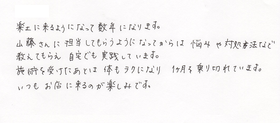 楽に来るようになって数年になります。
山藤さんに担当してもらうようになってからは 悩みや対処方法など
教えてもらえ 自宅でも実践しています。
施術を受けたあとは 体もラクになり 1ヶ月を乗り切れています。
いつも お店に来るのが楽しみです。